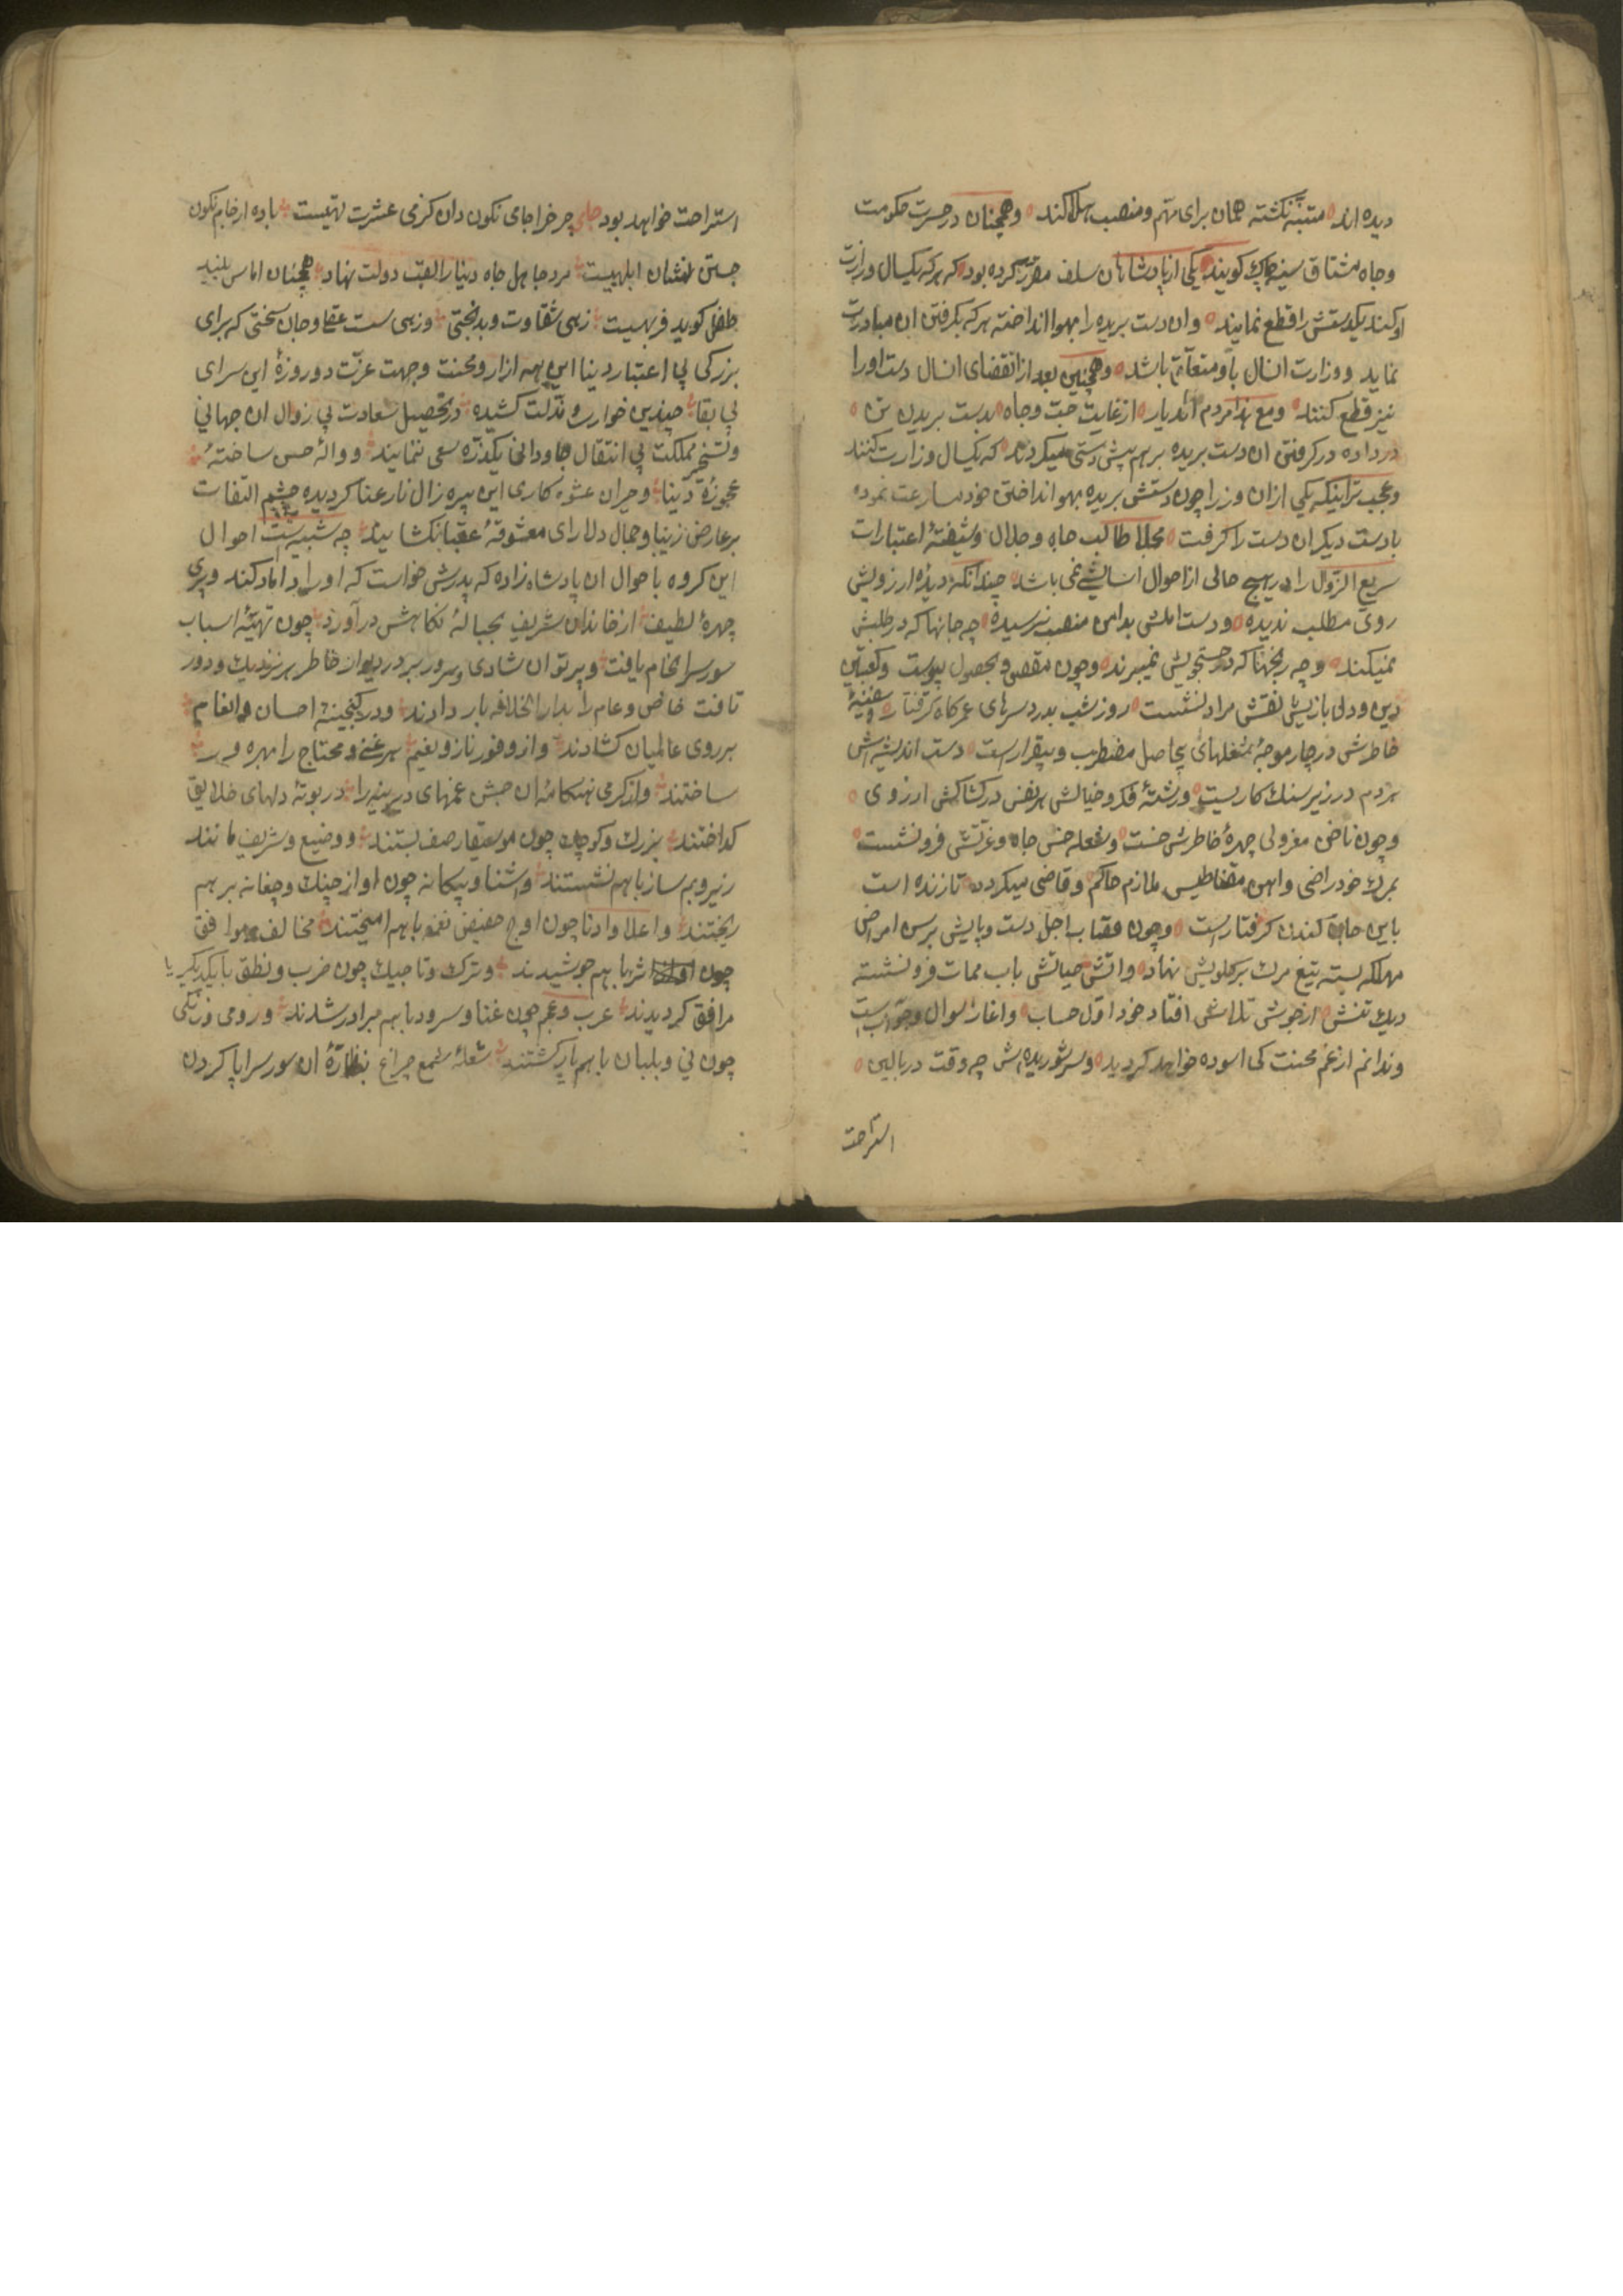 دیده اند متنبّه نکشته همان برای مهم و منصب هلاکند وهمچنان در حسرت حکومت
وجاه مشتاق سینه چاک کویند یکی از پادشاهان سلف مقرر کرده بود که هرکه یکسال وزارت
او کند یکدستش را قطع نمایند وان دست بریده را بهوا انداخته هرکه بکرفتن ان مبادرت
نماید ووزارت انسال باو متعلق باشد وهمچنین بعد از انقضای انسال دست اورا
نیز قطع کنند ومع هذا مردم اندیار از غایت حبّ وجاه بدست بریدن تن
درداده در کرفتن ان دست بریده بر هم پیش دستی میکردند که یکسال وزارت کنند
وعجب تر اینکه یکی ازان وزرا چون دستش بریده بهوا انداختن خود مسارعت نموده
بادست دیکر ان دست را کرفت مجلا طالب جاه وجلال وشیفتهٔ اعتبارات
سریع الزّوال را در هیچ حالی از احوال اسایشی نمی باشد چندانکه دیدهٔ ارزویش
روی مطلب ندیده ودست املش بدامن منصب نرسیده چه جانها که در طلبش
نمیکند وچه رنجها که در جستجویش نمیبرند وچون مقصود بحصول پیوست وکعبتین
دین ودلی بازیش نقش مراد نشست روز شب بدرد سرهای عمرکاه کرفتار وسفینهٔ
خاطرش در چار موجهٔ شغلهای بیحاصل مضطرب وبیقرارست دست اندیشه اش
هردم در زیر سنک کاریست ورشتهٔ فکر وخیالش هر نفس در کشاکش ارزوی
وچون ناخن معزولی چهرهٔ خاطرش خست وشعله خس جاه وعزّتش فرو نشست
بمرک خود راضی واهن مقناطیس ملازم حاکم وقاضی میکردد تا زنده است
باین جان کندن کرفتارست وچون عقاب اجل دست وپایش برسن امراض
مهلکه بسته تیغ مرک بر کلویش نهاد واتش حیاتش باب ممات فرو نشسته
دیک تنش از جوش تلاش افتاد خود اوّل حساب واغاز سوال وجوابست
وندانم از غم محنت کی اسوده خواهد کردید وسر شوریده اش چه وقت در بالین
استراحت
استراحت خواهد بود جای چر خراجای نکون دان کرمی عشرت نهیست باده از جام نکون
جستن نشان ابلهیست مرد جاهل جاه دنیا را لقب دولت نهاد همچنان اماس بیند
طفل کوید فربهیست زهی شقاوت وبدبختی وزهی سست عقل وجان سختی که برای
بزرکی بی اعتبار دینا این همه ازار ومحنت وجهت عزّت دو روزهٔ این سرای
بی بقا چندین خواری ومذلت کشیده در تحصیل سعادت بی زوال ان جهانی
وتسخیر مملکت بی انتقال جاودانی یکذره سعی ننمایند وواله حسن ساختهٔ
عجوزهٔ دنیا وحیران عشوه کاری این پیره زال نارعنا کردیده چشم التفات
بر عارض زیبا وجمال دلارای معشوقهٔ عقبا نکشایند چه شبیهست احوال
این کروه باحوال ان پادشاه زاده که پدرش خواست که اورا داماد کند وپری
چهرهٔ لطیف از خاندان شریف بحبالهٔ نکاحش در آورد چون تهیّهٔ اسباب
سور سرانجام یافت وپرتو ان شادی وسرور بر در ودیوار خاطر هر نزدیک ودور
تافت خاص وعام را بدار الخلافه بار دادند ودر کنجینهٔ احسان وانعام
بر روی عالمیان کشادند واز وفور ناز ونعیم هر غنی ومحتاج را بهره ور
ساختند واز کرمی هنکامهٔ ان جشن غمهای دیرینه را در بوتهٔ دلهای خلایق
کداختند بزرک وکوچک چون موسیقار صف بستند ووضیع وشریف مانند
زیر وبم ساز باهم نشستند واشنا وبیکانه چون اواز چنک وچغانه بر هم
ریختند واعلا وادنا چون اوج حضیض نغمه باهم امیختند مخالف وموافق
چون اشربها بهم جوشیدند وترک وتاجیک چون ضرب ونطق با یکدیکر یا
مرافق کردیدند عرب وعجم چون غنا وسرود باهم برادر شدند ورومی وزنکی
چون نی وبلبان باهم یار کشتند شعلهٔ شمع چراغ بنظارهٔ ان سور سراپا کردن